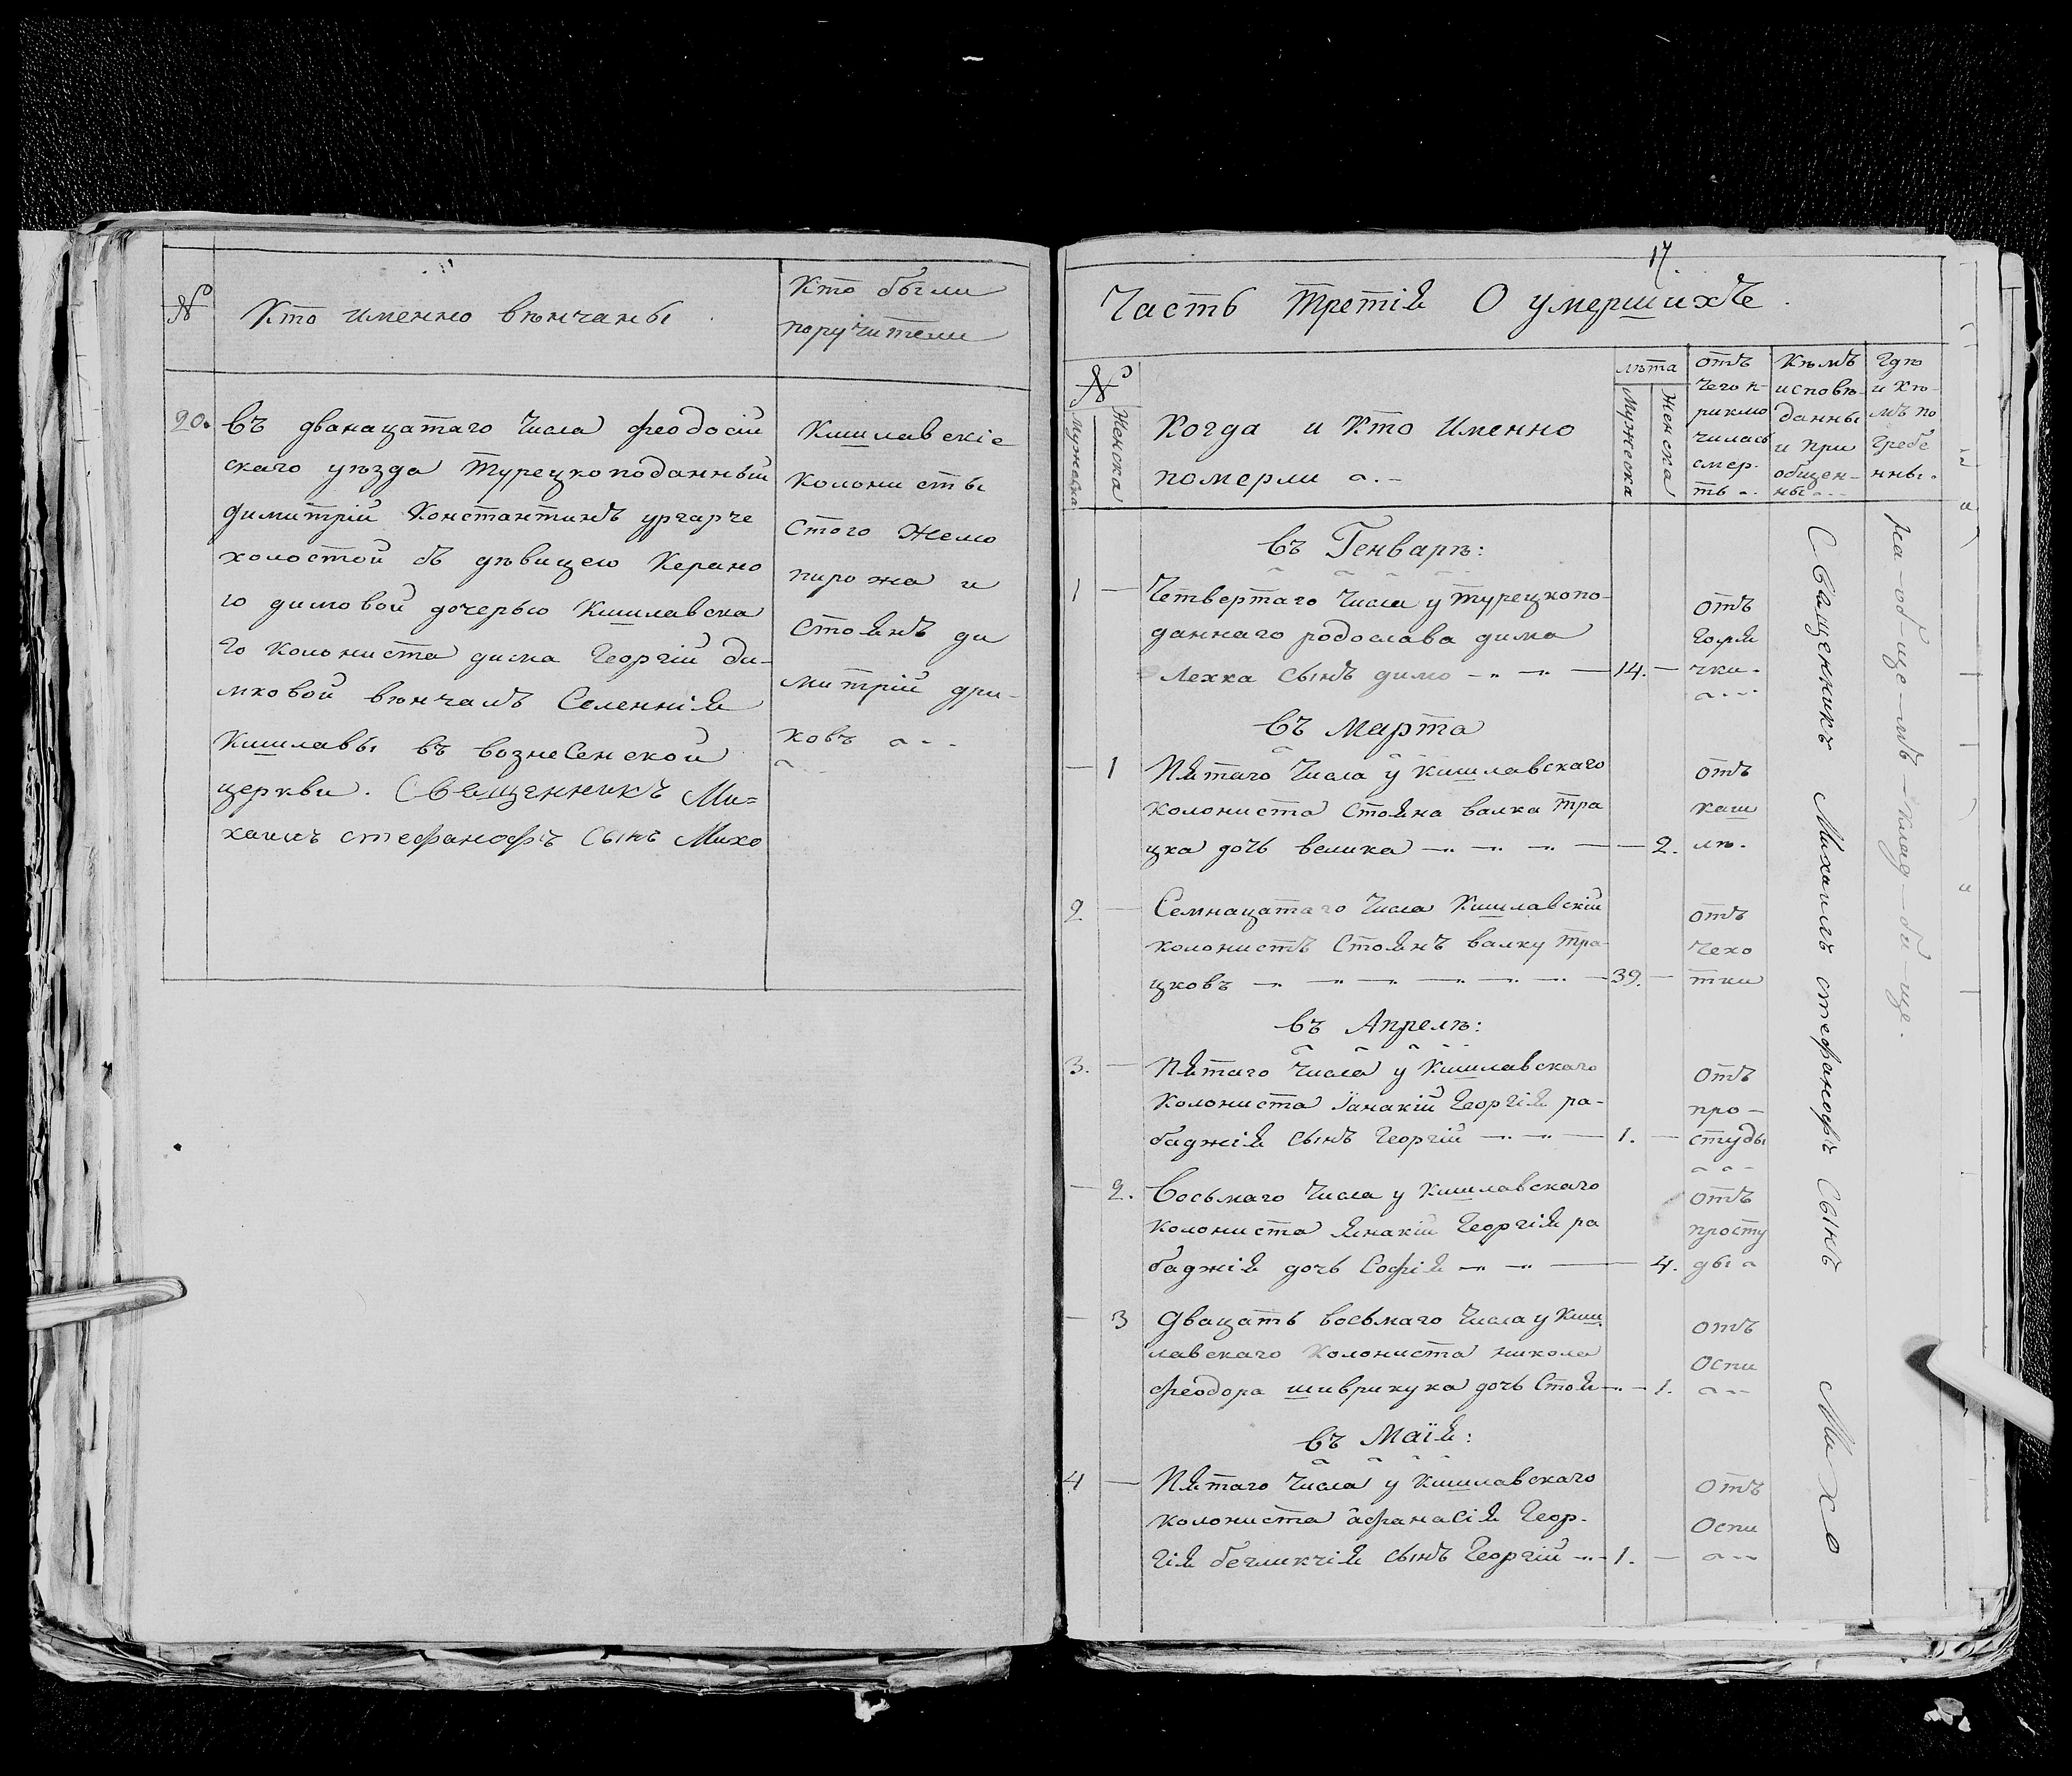 №
Кто именно вѣнчаны
Кто были
поручители
20.
въ дванацатаго Числа феодосій
скаго уѣзда Турецкоподанный
Димитрій Константинъ ургарче
холостой съ дѣвицею Керано
ю димовой дочерью Кишлавска
го колониста дима Георгій ди-
мковой вѣнчалъ Селеннія
Кишлавы въ вознесенской
церкви. Священникъ Ми=
хаилъ стефанофъ Сынъ Михо
Кишлавскіе
колонисты
Стого Жело
пирожа и
Стоянъ ди
митрій дри-
ковъ
17.
Часть Третія О умершихъ.
№
Мужеска
Женска
Когда и Кто Именно
померли
лѣта
Мужеска
Женска
отъ
чего п-
риклю
чилась
смер-
ть
Кѣмъ
исповѣ-
данны
и при
общен-
ны
Гдѣ
и Кѣ-
мъ по
гребе
нны.
въ Генварѣ:
1 — Четвертаго Числа у Турецкопо-
даннаго родослава дима
Лехка Сынъ димо — 14. —
отъ
горя
чки.
въ Марта
— 1 Пятаго Числа у кишлавскаго
колониста Стояна валка тра
цка дочь велика — 2.
отъ
каш
лѣ.
2 — Семнацатаго Числа Кишлавскій
колонистъ Стоянъ валку тра-
цковъ — 39. —
отъ
чехо
тки
въ Апрелѣ:
3. — Пятаго Числа у Кишлавскаго
Колониста Іанакій Георгія ра-
баджія Сынъ Георгій — 1. —
отъ
про-
студы
— 2. Восьмаго Числа у Кишлавскаго
колониста Янакій Георгія ра
баджія дочь Софія — 4.
отъ
просту
ды
— 3 Двацать восьмаго Числа у Киш
лавскаго Колониста никола
феодора шиврикука дочь Стоя — 1.
отъ
Оспи
въ Маія:
4 — Пятаго Числа у Кишлавскаго
колониста афанасія Геор-
гія бегликчія Сынъ Георгій — 1. —
отъ
Оспи
Священникъ Михаилъ стефанофъ Сынъ Михо
на-об-ще-мъ-клад-би-ще.